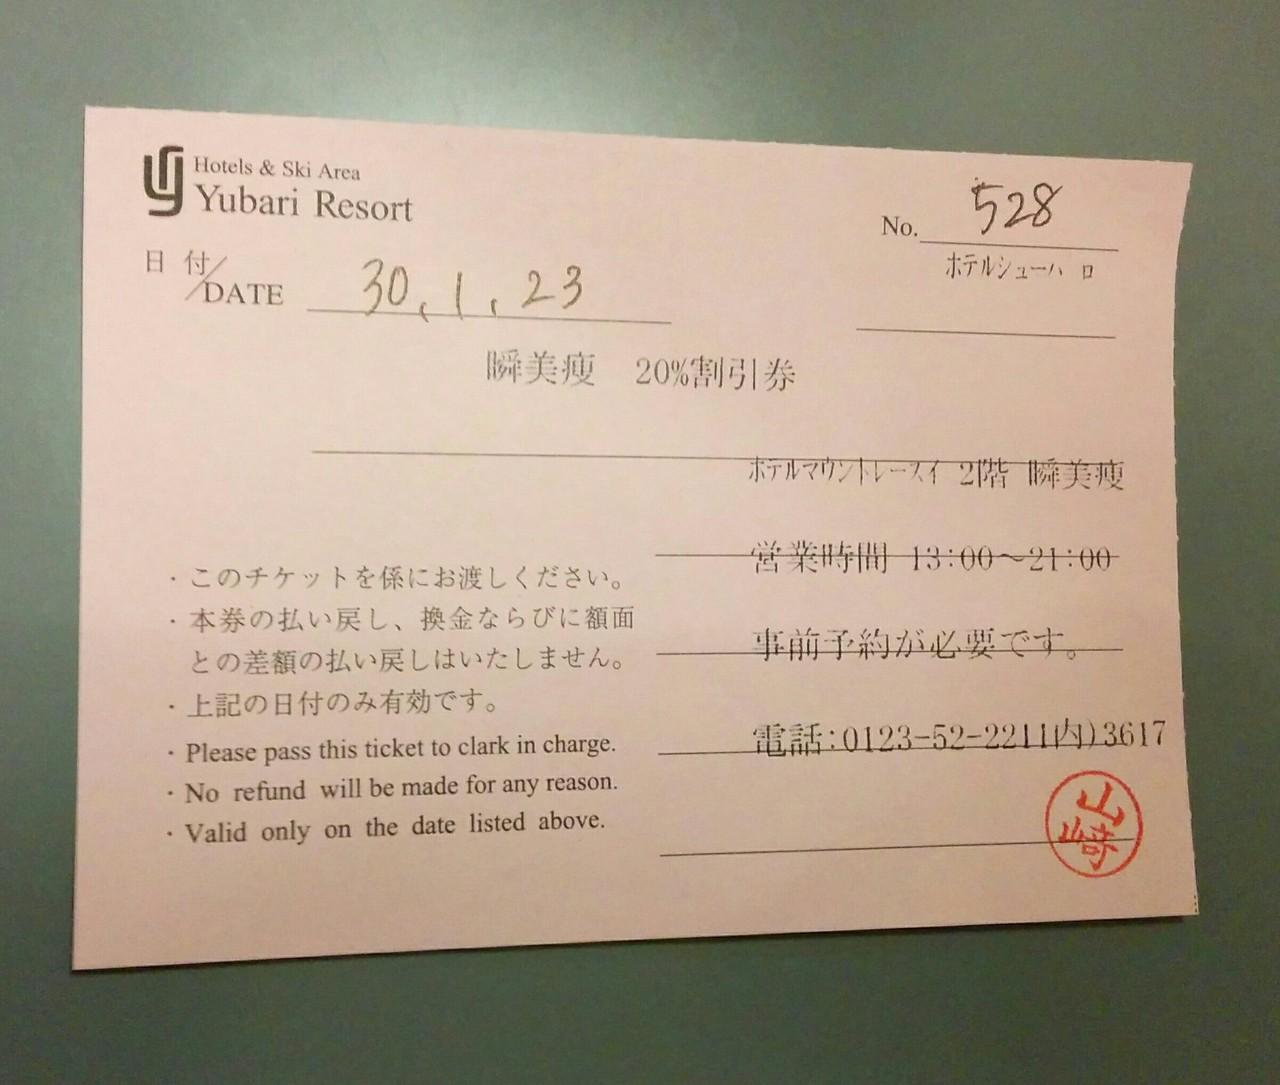 Hotels & Ski Area
Yubari Resort
No. 528
ホテルシューパロ
日 付/DATE 30.1.23
瞬美痩 20%割引券
ホテルマウントレースイ 2階 瞬美痩
営業時間 13:00～21:00
事前予約が必要です。
電話:0123-52-2211内)3617
・このチケットを係にお渡しください。
・本券の払い戻し、換金ならびに額面
との差額の払い戻しはいたしません。
・上記の日付のみ有効です。
・Please pass this ticket to clark in charge.
・No refund will be made for any reason.
・Valid only on the date listed above.
山崎